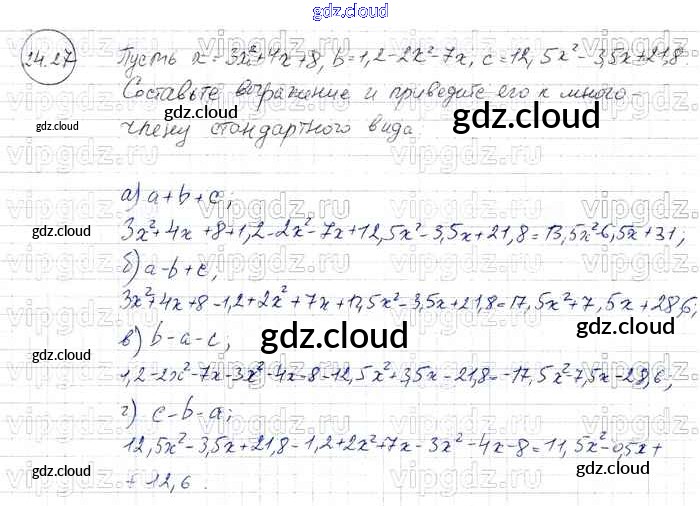 gdz.cloud
24.27 Пусть x = 3x²+4x+8, b=1,2-2x²-7x, c=12,5x²-3,5x+21,8
Составьте выражение и приведите его к много-
члену стандартного вида.
gdz.cloud
gdz.cloud
а) a+b+c;
3x²+4x+8+1,2-2x²-7x+12,5x²-3,5x+21,8=13,5x²-6,5x+31;
gdz.cloud
gdz.cloud
б) a-b+c;
3x²+4x+8-1,2+2x²+7x+12,5x²-3,5x+21,8=17,5x²+7,5x+28,6;
в) b-a-c;
gdz.cloud
gdz.cloud
1,2-2x²-7x-3x²-4x-8-12,5x²+3,5x-21,8=-17,5x²-7,5x-28,6;
г) c-b-a;
12,5x²-3,5x+21,8-1,2+2x²+7x-3x²-4x-8=11,5x²-0,5x+
+12,6.
gdz.cloud
gdz.cloud
vipgdz.ru